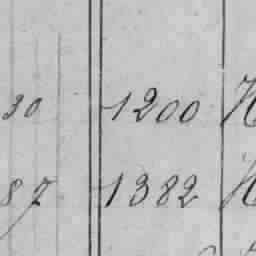 30 1200 H
87 1382 H